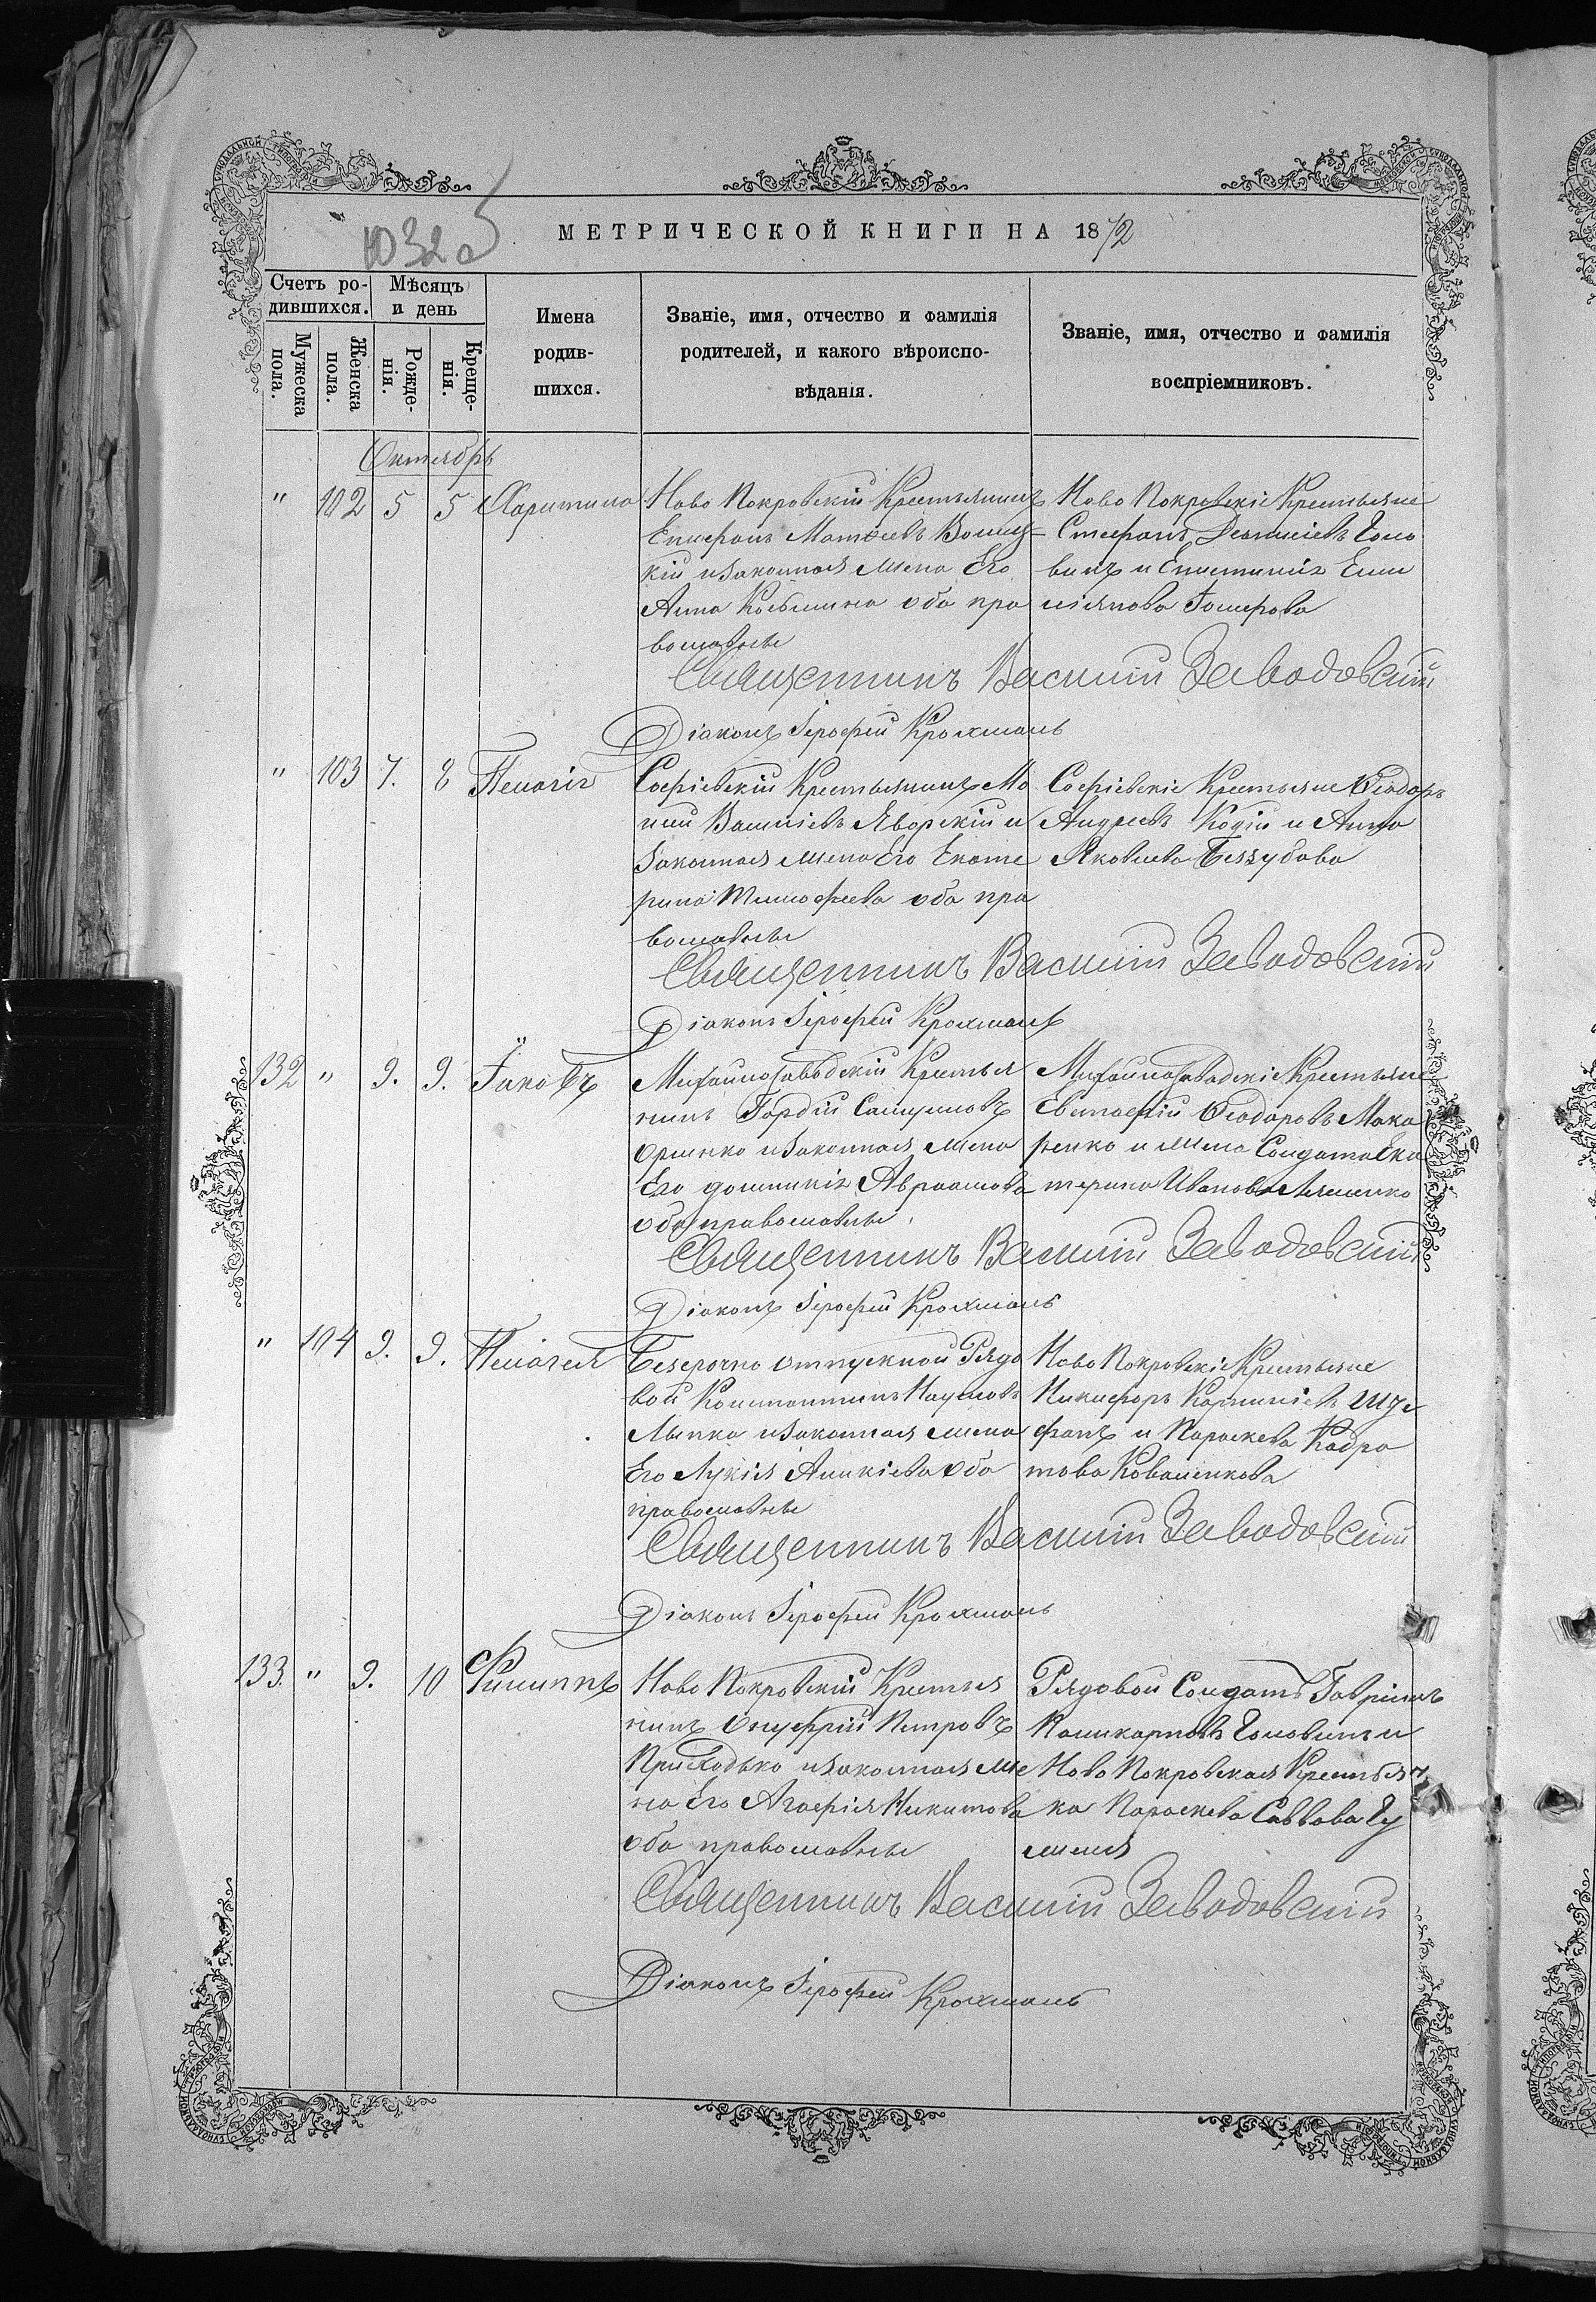 1032 об
МЕТРИЧЕСКОЙ КНИГИ НА 1872
Счетъ ро-
дившихся.
Мѣсяцъ
и день
Мужеска
пола.
Женска
пола.
Рожде-
нія.
Креще-
нія.
Имена
родив-
шихся.
Званіе, имя, отчество и фамилія
родителей, и какого вѣроиспо-
вѣданія.
Званіе, имя, отчество и фамилія
воспріемниковъ.
Октябрь
" 102 5 5 Харитина
Ново Покровскій Крестьянинъ
Епифанъ Матѳеевъ
кій и законная жена Его
Анна Козьмина оба пра
вославные
Ново Покровскіе Крестьяне
Стефанъ Діонисіевъ Голо
винъ и Епистимія Еми
ліянова
Священникъ Василій Заводовскій
Діаконъ Іероѳей Крохмаль
" 103 7. 8 Пелагія
Софіевскій Крестьянинъ
Василіевъ Яворскій и
законная жена Его Екате
рина Тимофеева оба пра
вославные
Софіевскіе Крестьяне Ѳеодоръ
Андреевъ и Анна
Яковлева Беззубова
Священникъ Василій Заводовскій
Діаконъ Іероѳей Крохмаль
132 " 9. 9. Іаковъ
Михайлозаводскій Крестья
нинъ Гордій Самуиловъ
и законная жена
Его Домникія Авраамова
оба православные
Михайлозаводскіе Крестьяне
Евстафій Ѳеодоровъ Мака
ренко и жена Солдата Ека
терина Иванова Ляшенко
Священникъ Василій Заводовскій
Діаконъ Іероѳей Крохмаль
" 104 9. 9. Пелагея
Безсрочно отпускной Рядо
вой Константинъ Наумовъ
Лыпка и законная жена
Его Лукія оба
православные
Ново Покровскіе Крестьяне
Никифоръ Корниліевъ Шу
фанъ и Параскева Кодра
това Коваленкова
Священникъ Василій Заводовскій
Діаконъ Іероѳей Крохмаль
133. " 9. 10 Филиппъ
Ново Покровскій Крестья
нинъ Онуфрій Петровъ
Приходько и законная же
на Его Агафія Никитова
оба православные
Рядовой Солдатъ Гавріилъ
Поликарповъ Головинъ и
Ново Покровская Крестьян
ка Параскева Саввова Гу
меня
Священникъ Василій Заводовскій
Діаконъ Іероѳей Крохмаль